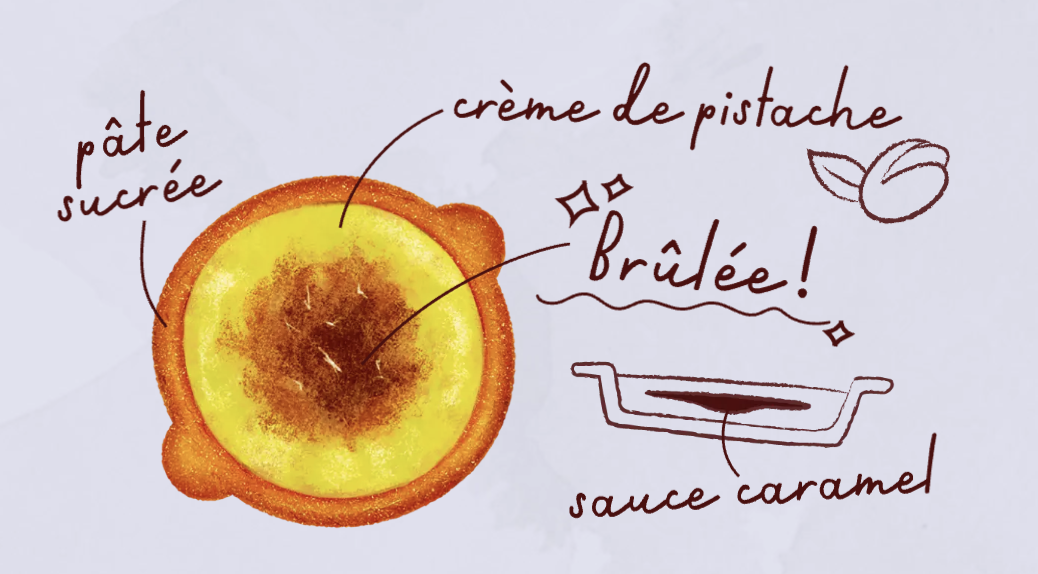 crème de pistache
pâte
sucrée
Brûlée!
sauce caramel